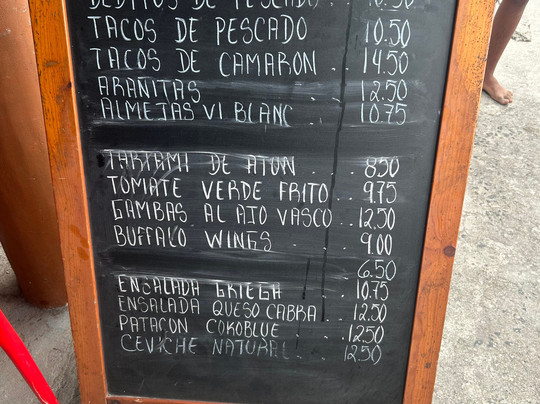 DEDITOS DE PESCADO . 10.50
TACOS DE PESCADO 10.50
TACOS DE CAMARON .. 14.50
ARAÑITAS . . 12.50
ALMEJAS VI BLANC . . 10.75
TARTAMI DE ATUN . . 8.50
TOMATE VERDE FRITO . . 9.75
GAMBAS AL AJO VASCO . . 12.50
BUFFALO WINGS . . . 9.00
. . 6.50
ENSALADA GRIEGA . 10.75
ENSALADA QUESO CABRA . . 12.50
PATACON COKOBLUE . 12.50
CEVICHE NATURAL . . 12.50